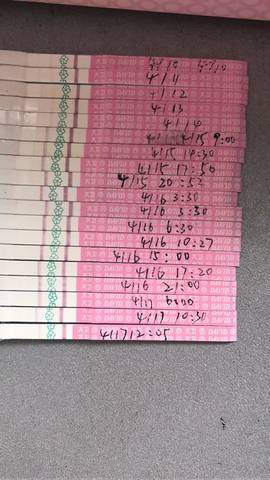 4/10
4/11
4/12
4/13
4/14
4/15 9:00
4/15 14:30
4/15 17:50
4/15 20:52
4/16 3:30
4/16 3:30
4/16 6:30
4/16 10:27
4/16 15:00
4/16 17:20
4/16 21:00
4/17 6:00
4/17 10:30
4/17 12:05